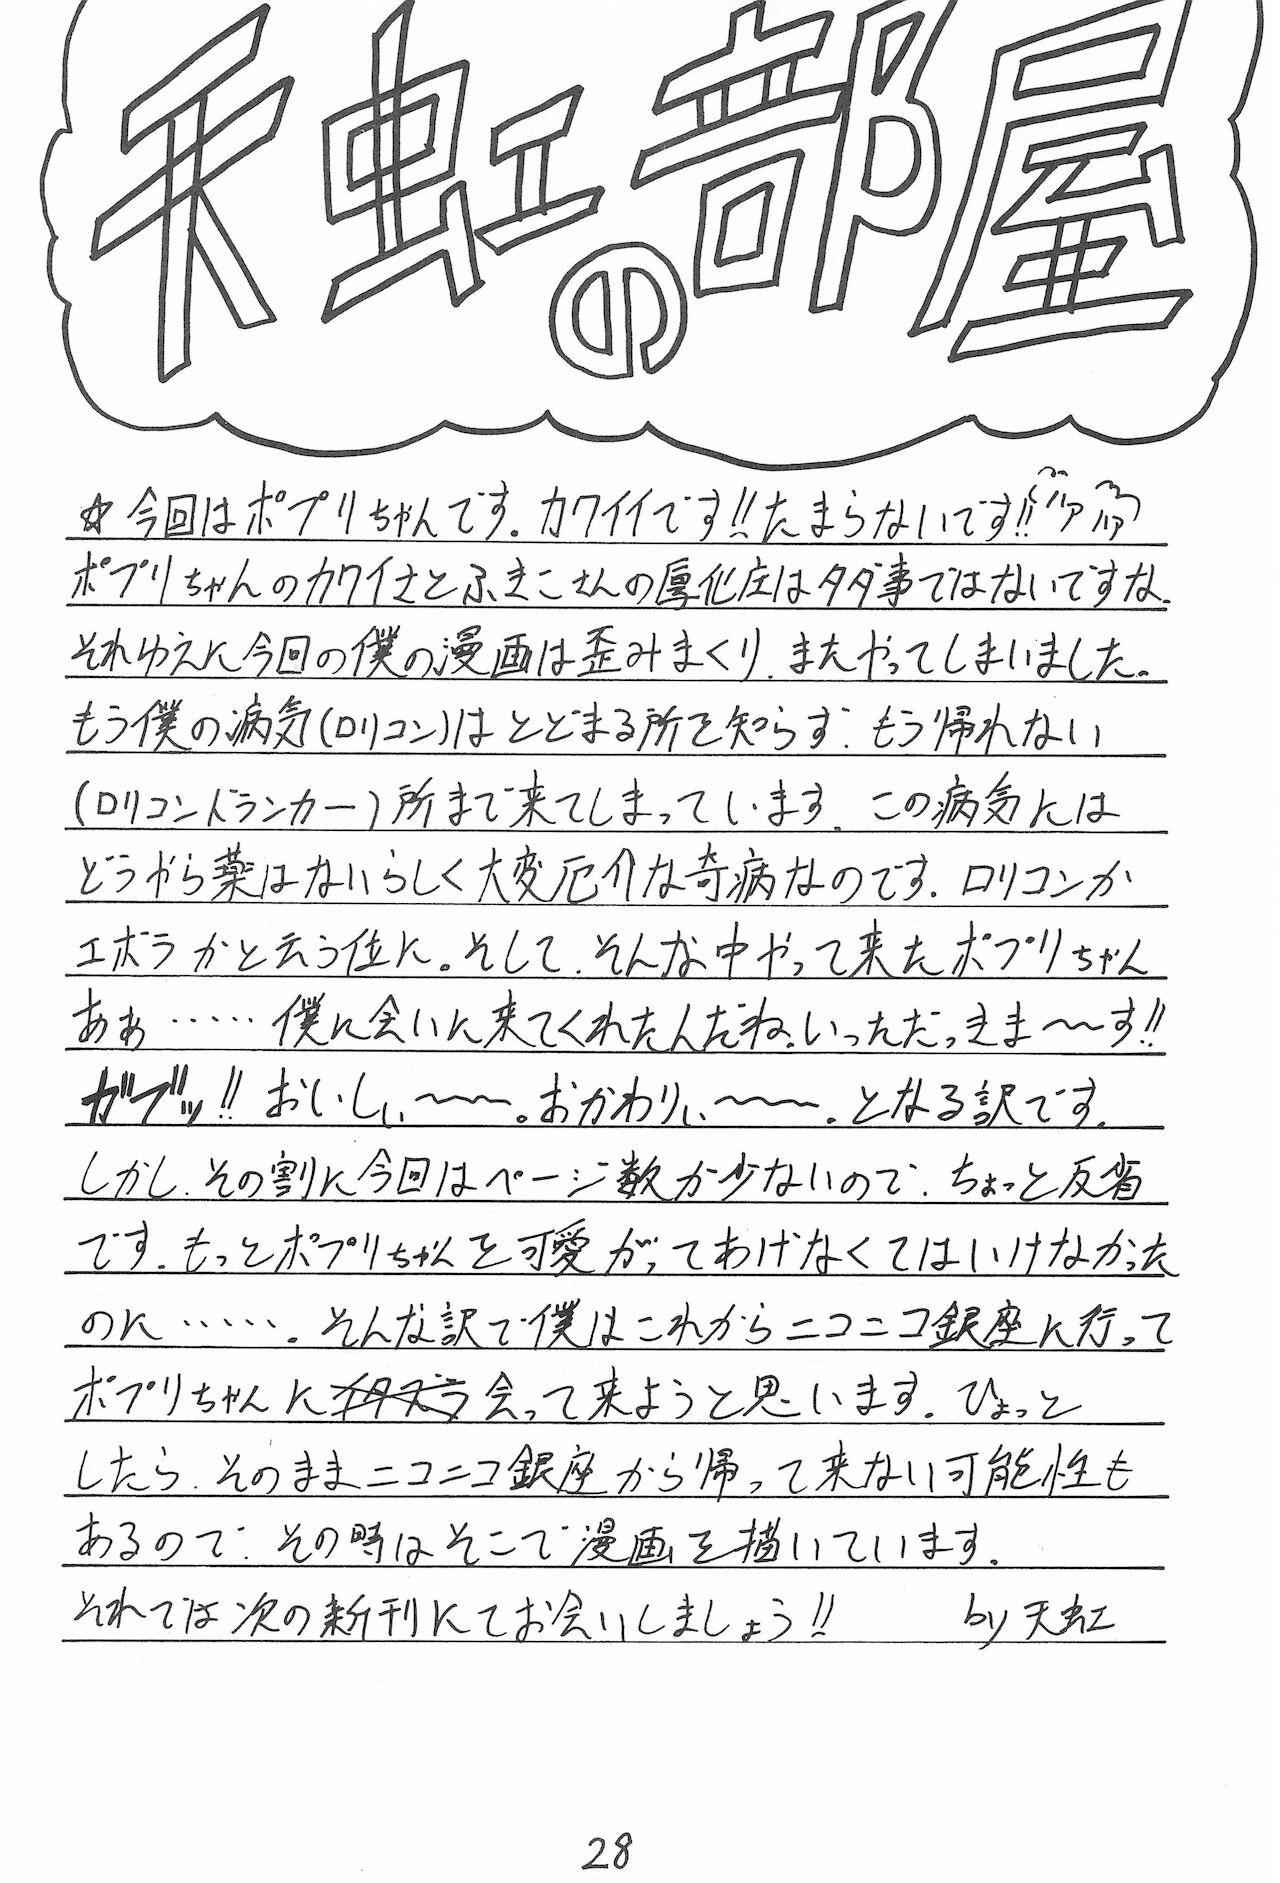 天虹の部屋
☆今回はポプリちゃんです。カワイイです!!たまらないです!!ハァハァ
ポプリちゃんのカワイさとふきこさんの厚化庄はタダ事ではないですな。
それゆえに今回の僕の漫画は歪みまくり、またやってしまいました。
もう僕の病気(ロリコン)はとどまる所を知らず、もう帰れない
(ロリコンドランカー)所まで来てしまっています。この病気には
どうやら薬はないらしく大変厄介な奇病なのです。ロリコンか
エボラかと云う位に。そして、そんな中やって来たポプリちゃん
あぁ……僕に会いに来てくれたんだね。いっただっきま〜〜す!!
ガブッ!!おいしぃ〜〜〜。おかわりぃ〜〜〜。となる訳です。
しかし、その割に今回はページ数が少ないので、ちょっと反省
です。もっとポプリちゃんを可愛がってあげなくてはいけなかった
のに……。そんな訳で僕はこれからニコニコ銀座に行って
ポプリちゃんにイタズラ会って来ようと思います。ひょっと
したら、そのままニコニコ銀座から帰って来ない可能性も
あるので、その時はそこで漫画を描いています。
それでは次の新刊にてお会いしましょう!! by天虹
28